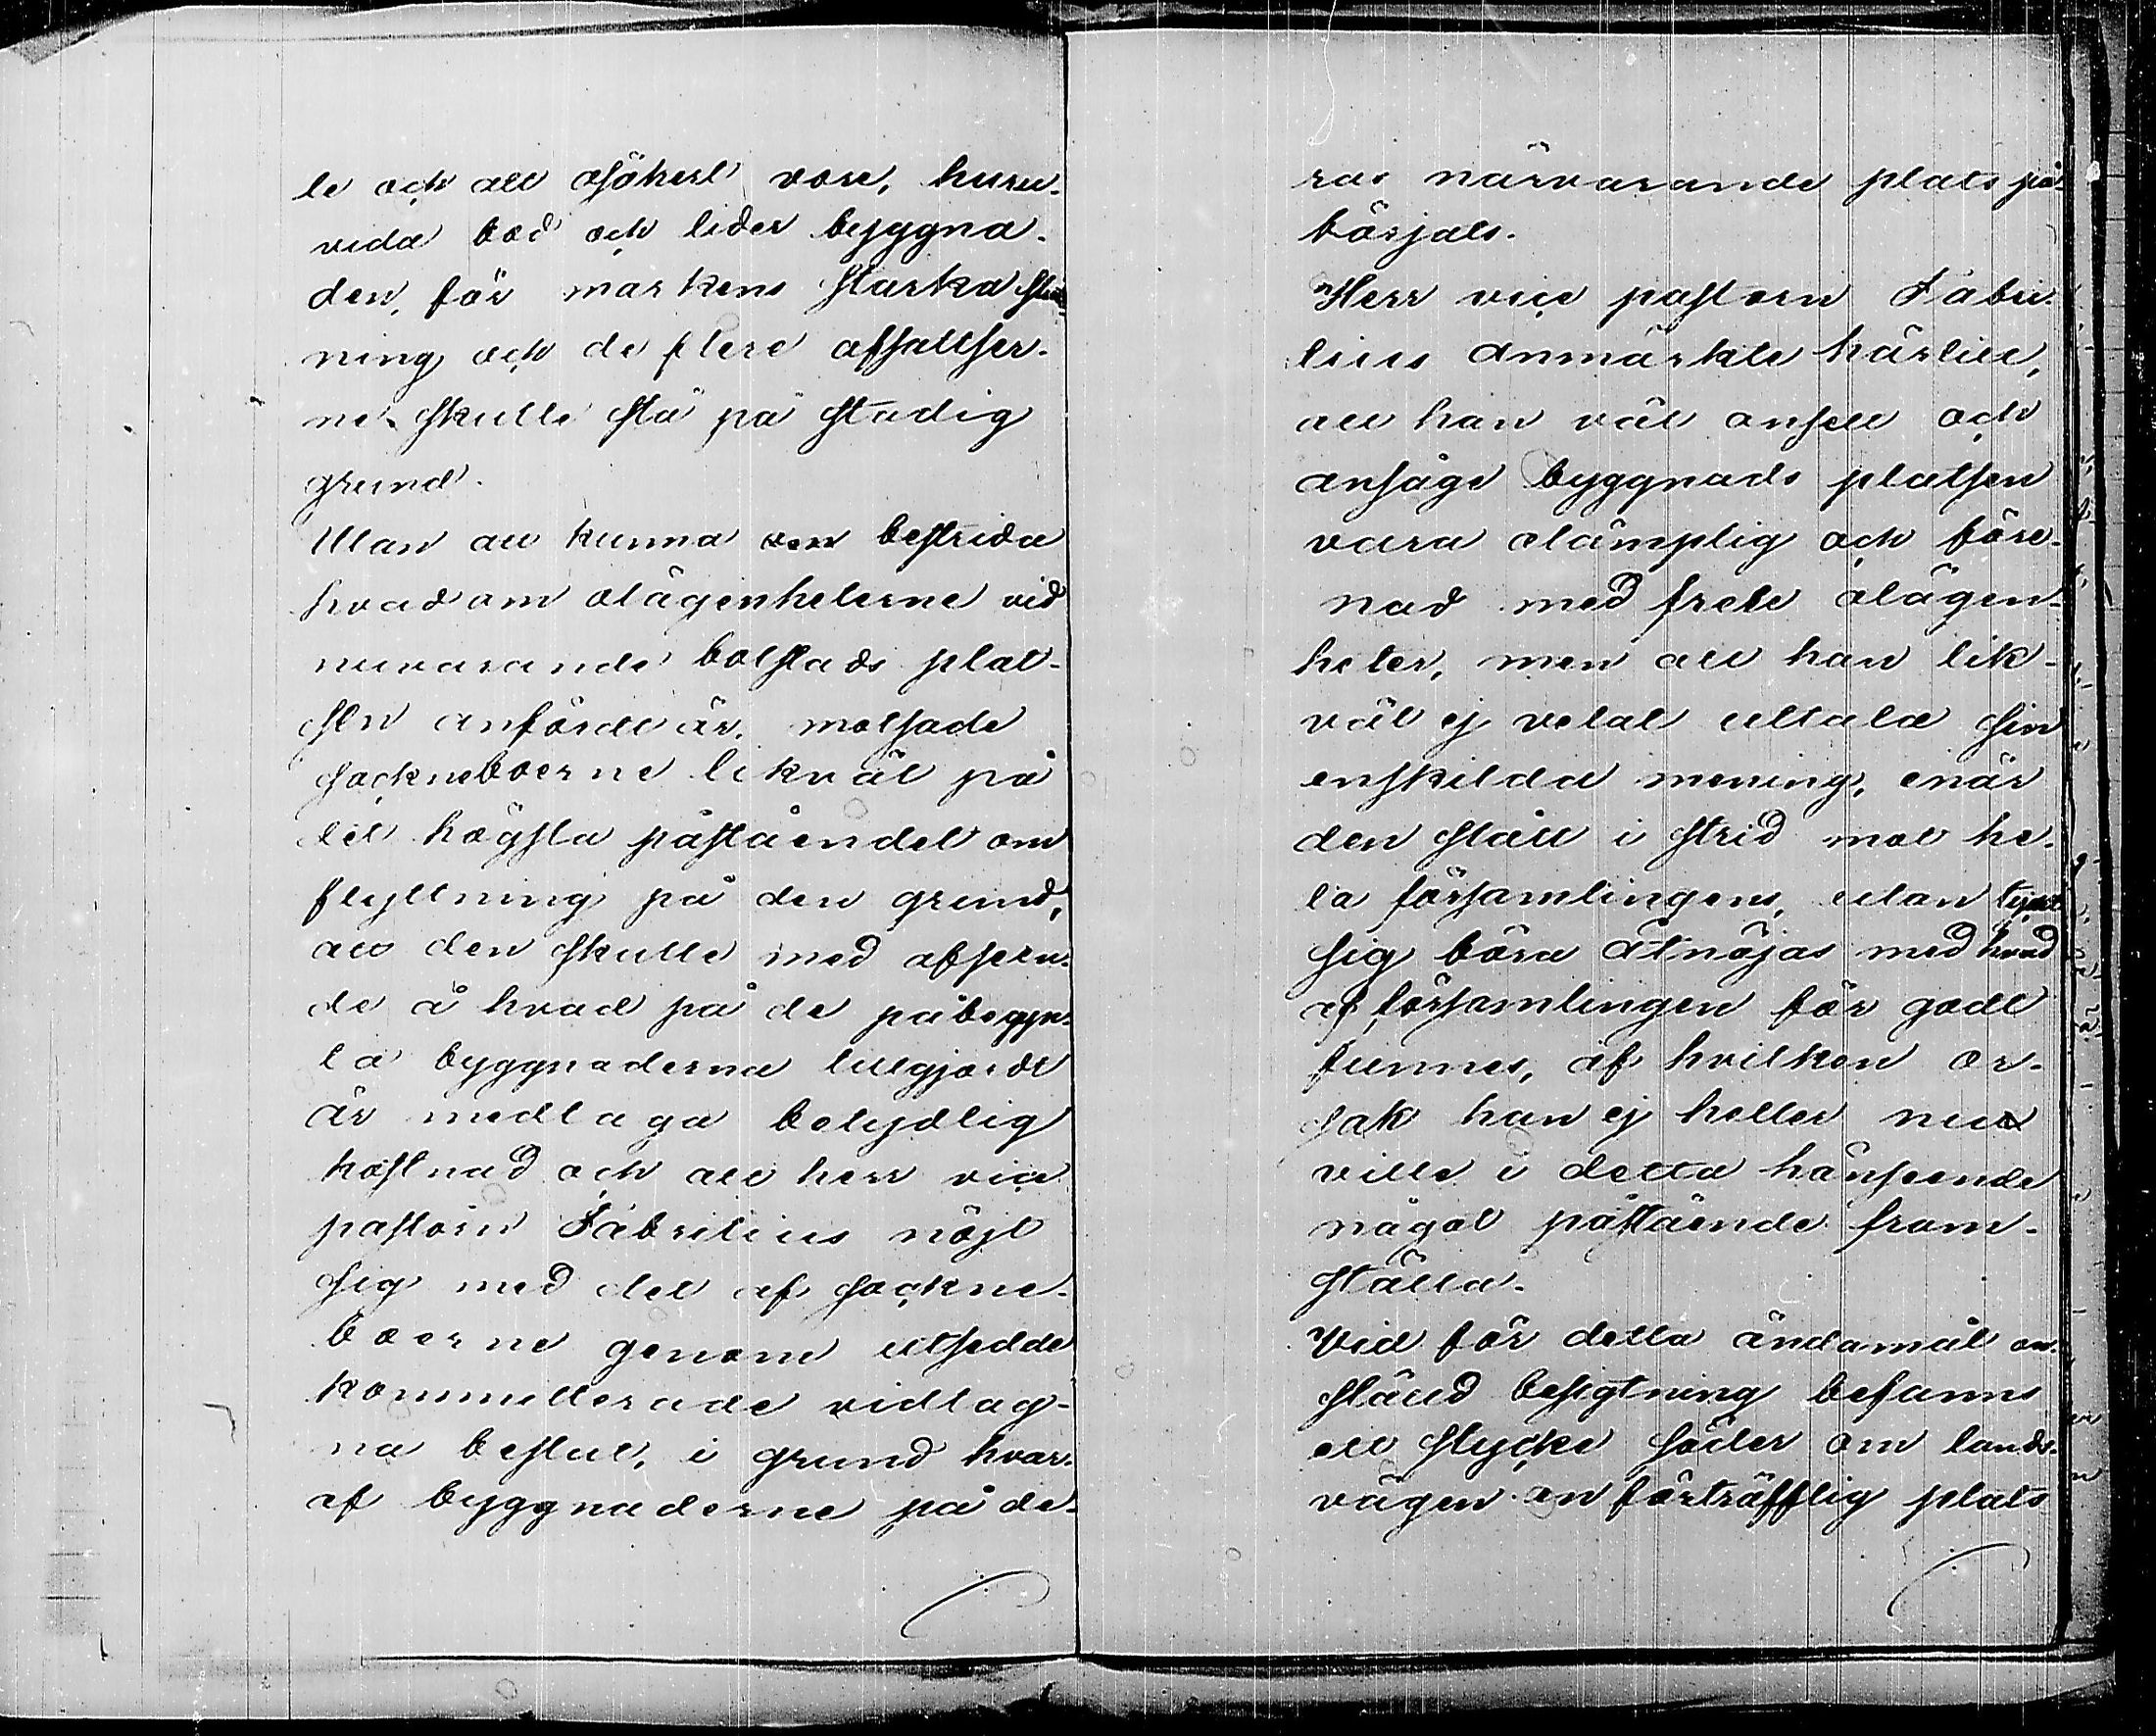 te och att osäkert vore, huru-
vida bod och lider byggna-
den, för markens starka
ning och de flere afsattser-
ne skulle stå på stadig
grund.
Utan att kunna bestrida
hvad om olägenheterne vid
nuvarande bolstads plat-
sen anfördt är, motsade
sockneboerne likväl på
det högsta påståendet om
flyttning på den grund,
att den skulle med afseen-
de å hvad på de påbegyn-
ta byggnaderna tillgjordt
är medtaga betydlig
kostnad och att herr vice
pastorn Fabritius nöjt
sig med det af sockne-
boerne genom utsedde
kommitterade vidtag-
na beslut, i grund hvar-
af byggnaderne på de-
ras närvarande plats på-
börjats.
Herr vice pastorn Fabri-
tius anmärkte härtill,
att han väl ansett och
ansåge byggnads platsen
vara olämplig och före-
nad med flere olägen-
heter, men att han lik-
väl ej velat uttala sin
enskilda mening, enär
den stått i strid mot he-
la församlingens, utan tyckt
sig böra åtnöjas med hvad
af församlingen för godt
funnes, af hvilken or-
sak han ej heller nu
ville i detta hänseende
något påstående fram-
ställa.
Vid för detta ändamål an-
stäld besigtning befanns
ett stycke söder om lands-
vägen en förträfflig plats